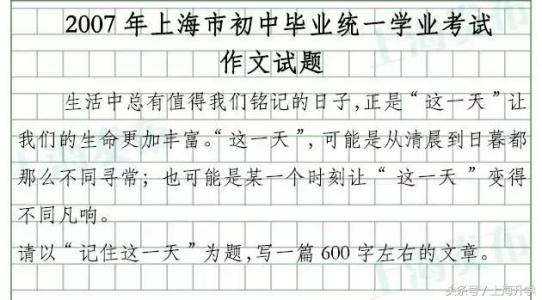 2007年上海市初中毕业统一学业考试
作文试题
生活中总有值得我们铭记的日子,正是“这一天”让
我们的生命更加丰富。“这一天”,可能是从清晨到日暮都
那么不同寻常;也可能是某一个时刻让“这一天”变得
不同凡响。
请以“记住这一天”为题,写一篇600字左右的文章。
头条号/上海升学